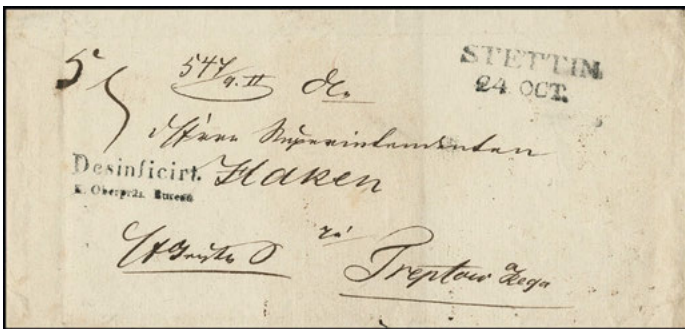 STETTIN
24 OCT.
547
Herrn Superintendenten
Desinficirt. Haken
K. Oberpräs. Bureau
zu
Treptow Rega